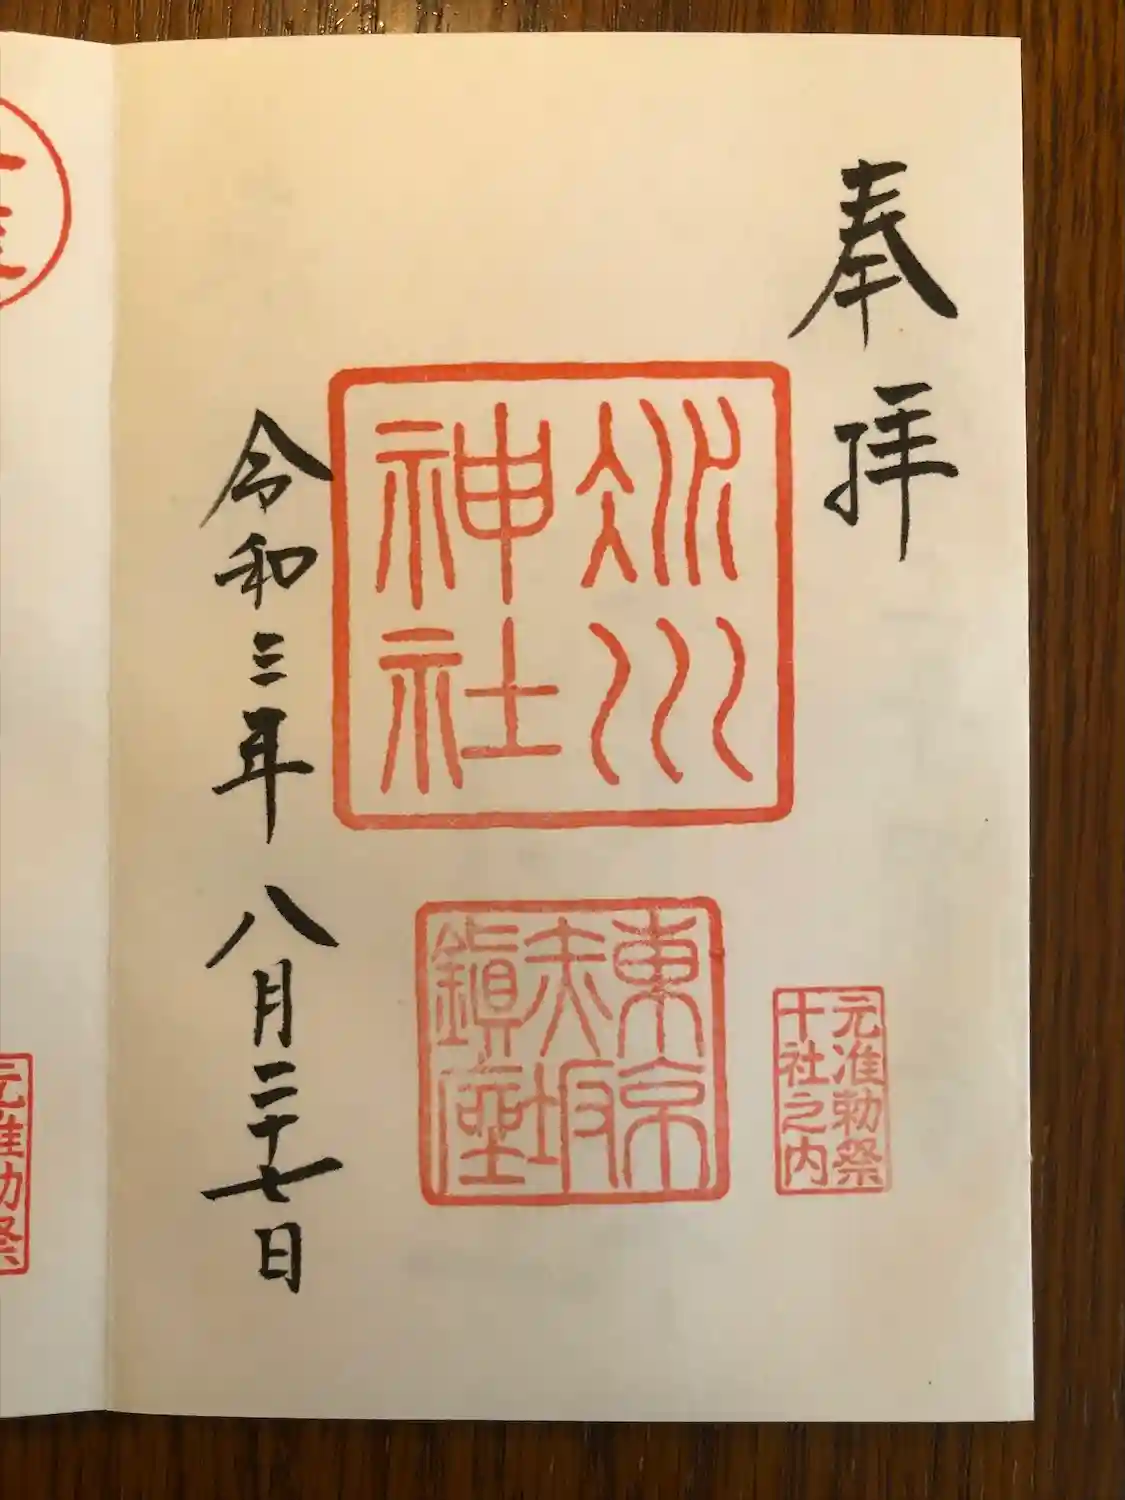 奉拝
冰川
神社
東京
赤坂
鎮座
元准勅祭
十社之内
令和三年八月二十七日